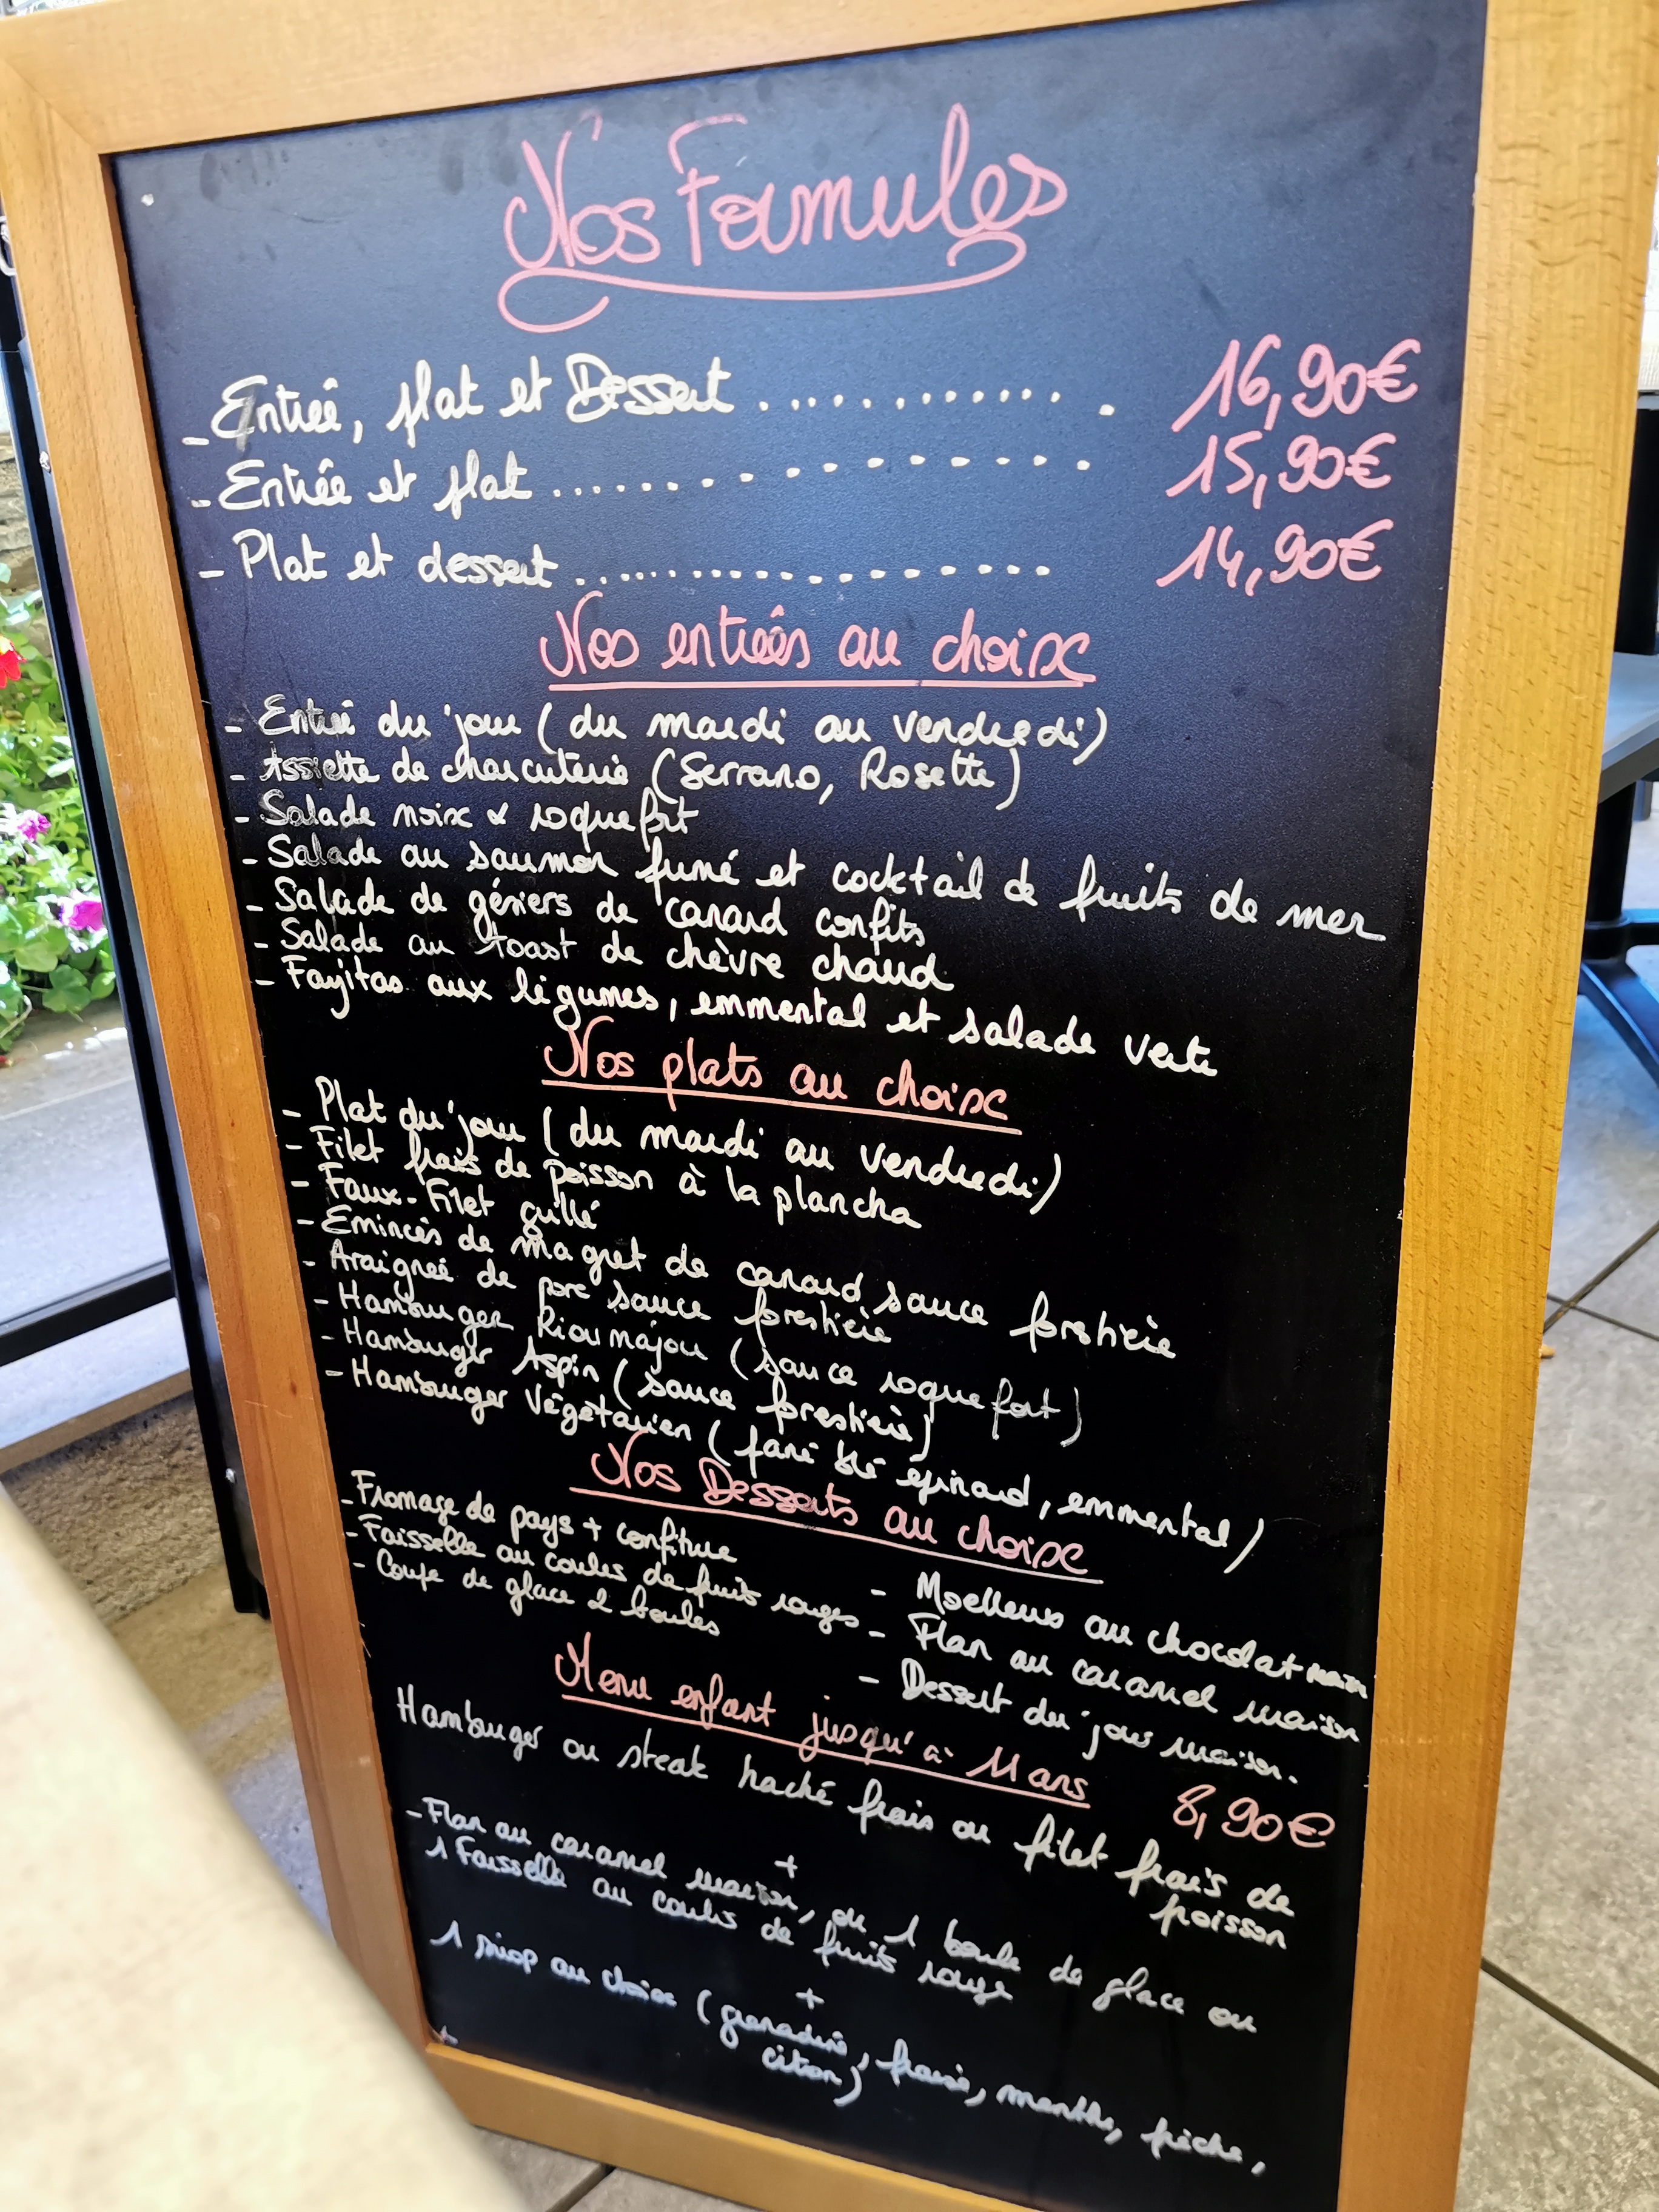 Nos Formules
- Entrée, plat et Dessert .............. 16,90€
- Entrée et plat .............. 15,90€
- Plat et dessert .................. 14,90€
Nos entrées au choix
- Entrée du jour (du mardi au vendredi)
- Assiette de charcuterie (Serrano, Rosette)
- Salade noix & roquefort
- Salade au saumon fumé et cocktail de fruits de mer
- Salade de gésiers de canard confits
- Salade au toast de chèvre chaud
- Fajitas aux légumes, emmental et salade verte
Nos plats au choix
- Plat du jour (du mardi au vendredi)
- Filet frais de poisson à la plancha
- Faux-Filet grillé
- Emincés de magret de canard sauce forestière
- Araignée de porc sauce forestière
- Hamburger Rioumajou (sauce roquefort)
- Hamburger Aspin (sauce forestière)
- Hamburger Végétarien (pané blé épinard, emmental)
Nos Desserts au choix
- Fromage de pays + confiture
- Faisselle au coulis de fruits rouges
- Coupe de glace 2 boules
- Moelleux au chocolat maison
- Flan au caramel maison
- Dessert du jour maison.
Menu enfant jusqu'à 11 ans 8,90€
Hamburger ou steak haché frais ou filet frais de
poisson
+
- Flan au caramel maison, ou 1 boule de glace ou
1 Faisselle au coulis de fruits rouge
+
1 sirop au choix (grenadine, fraise, menthe, pêche,
citron)